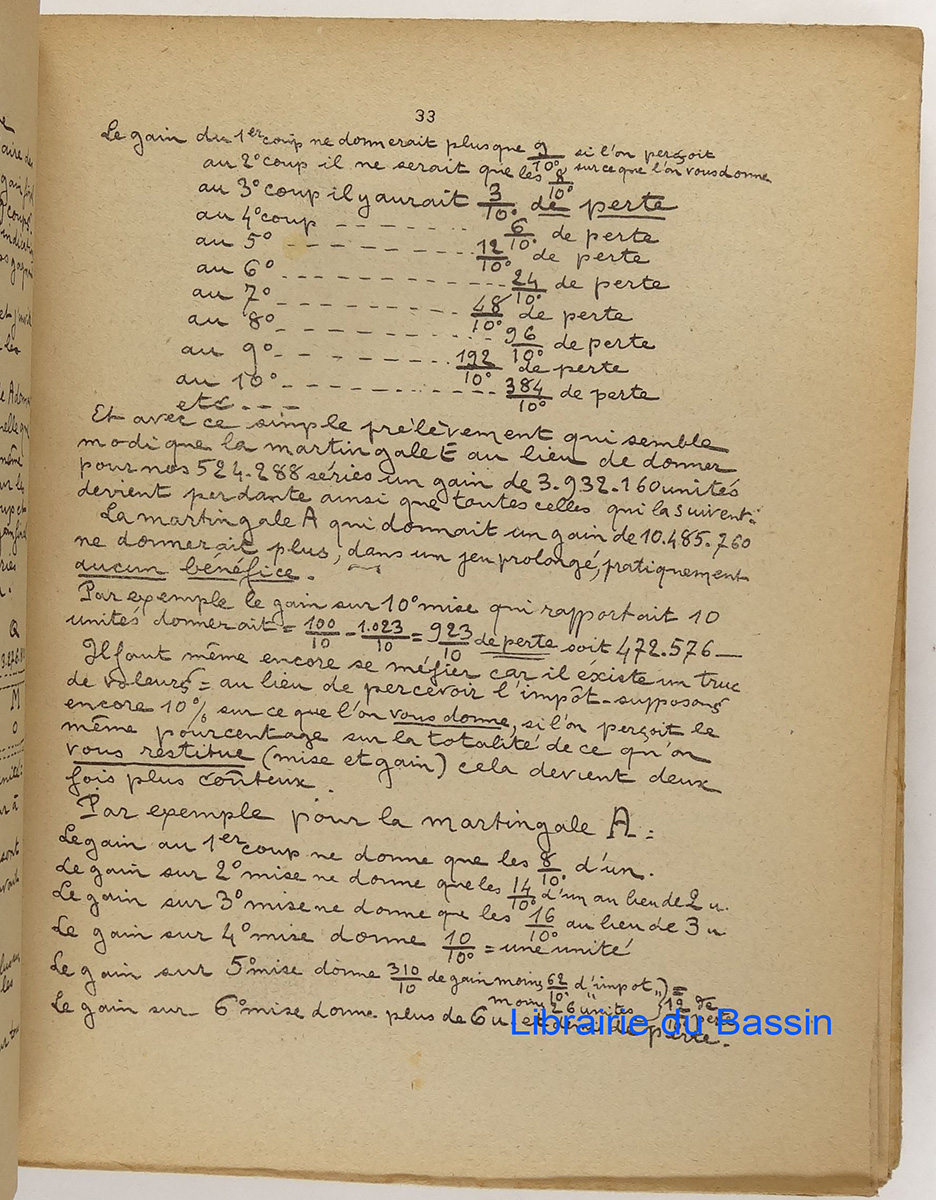 33
Le gain du 1er coup ne donnerait plus que 9/10° si l'on perçoit
au 2° coup il ne serait que les 8/10° sur ce que l'on vous donne
au 3° coup il y aurait 3/10° de perte
au 4° coup - - - - - - - 6/10° de perte
au 5° - - - - - - - - 12/10° de perte
au 6° - - - - - - - - - 24/10° de perte
au 7° - - - - - - - - 48/10° de perte
au 8° - - - - - - - - - 96/10° de perte
au 9° - - - - - - - - 192/10° de perte
au 10° - - - - - - - - - 384/10° de perte
etc - - -
Et avec ce simple prélèvement qui semble
modique la martingale E au lieu de donner
pour nos 524.288 séries un gain de 3.932.160 unités
devient perdante ainsi que toutes celles qui la suivent.
La martingale A qui donnait un gain de 10.485.760
ne donnerait plus, dans un jeu prolongé, pratiquement
aucun bénéfice.
Par exemple le gain sur 10° mise qui rapportait 10
unités donnerait = 100/10 - 1.023/10 = 923/10 de perte soit 472.576 —
Il faut même encore se méfier car il existe un truc
de voleurs = au lieu de percevoir l'impôt - supposons
encore 10% sur ce que l'on vous donne, si l'on perçoit le
même pourcentage sur la totalité de ce qu'on
vous restitue (mise et gain) cela devient deux
fois plus coûteux.
Par exemple pour la martingale A =
Le gain au 1er coup ne donne que les 8/10° d'un.
Le gain sur 2° mise ne donne que les 14/10° d'un au lieu de 2 u.
Le gain sur 3° mise ne donne que les 16/10° au lieu de 3 u
Le gain sur 4° mise donne 10/10° = une unité
Le gain sur 5° mise donne 310/10 de gain moins 62/10° d'impôt =
moins 26 unités 12 de perte
Le gain sur 6° mise donne plus de 6 u de perte.
Librairie du Bassin